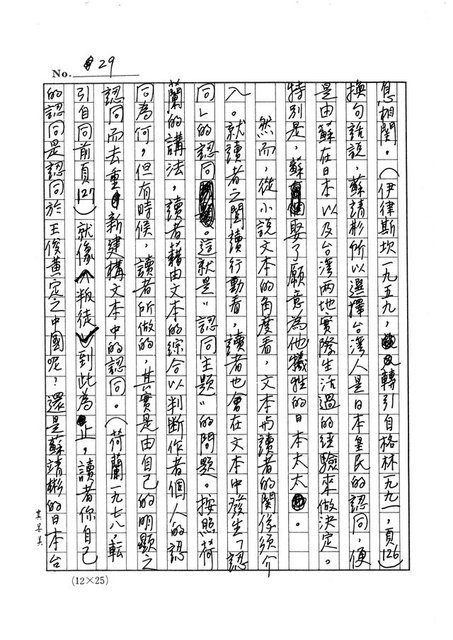 No. 29
息相關。（伊律斯坎一九五九，轉引自格林一九九一，頁126）
換句話說，蘇請彬所以選擇台灣人是日本皇民的認同，便
是由蘇在日本以及台灣兩地實際生活過的經驗來做決定。
特別是，蘇娶了願意為他犧牲的日本太太。
然而，從小說文本的角度看，文本與讀者的關係須介
入。就讀者之閱讀行動看，讀者也會在文本中發生「認
同」的認同。這就是"認同主題"的問題。按照荷
蘭的講法，讀者藉由文本的綜合以判斷作者個人的認
同為何，但有時候，讀者所做的，其實是由自己的明顯之
認同而去重新建構文本中的認同。（荷蘭一九七八，轉
引自同前頁127）就像〈叛徒〉到此為止，讀者你自己
的認同是認同於王俊黃定之中國呢？還是蘇請彬的日本台
(12×25)